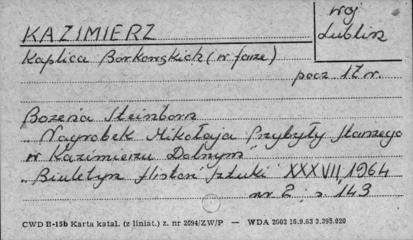 KAZIMIERZ
woj
Lublin
Kaplica Borkowskich (w farze)
pocz 17 w.
Bożena Steinborn
"Nagrobek Mikołaja Przybyły Starszego
w Kazimierzu Dolnym"
"Biuletyn Histori Sztuki" XXXVII, 1964
nr 2, s. 143
CWD H-15b Karta katal. (z liniat.) z. nr 2094/ZW/P — WDA 2002 16.9.63 2.395.020